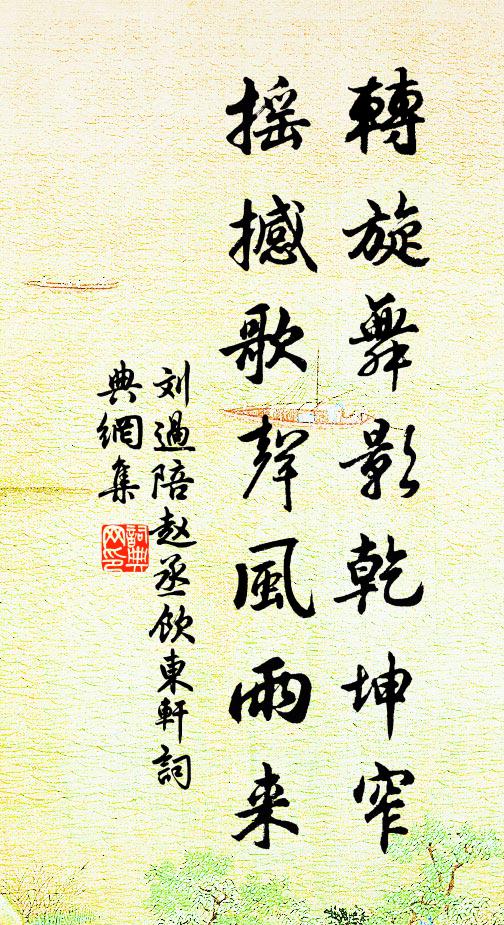 轉旋舞影乾坤窄
搖撼歌聲風雨来
刘過陪赵丞飲東軒詞
典網集
詞典网印